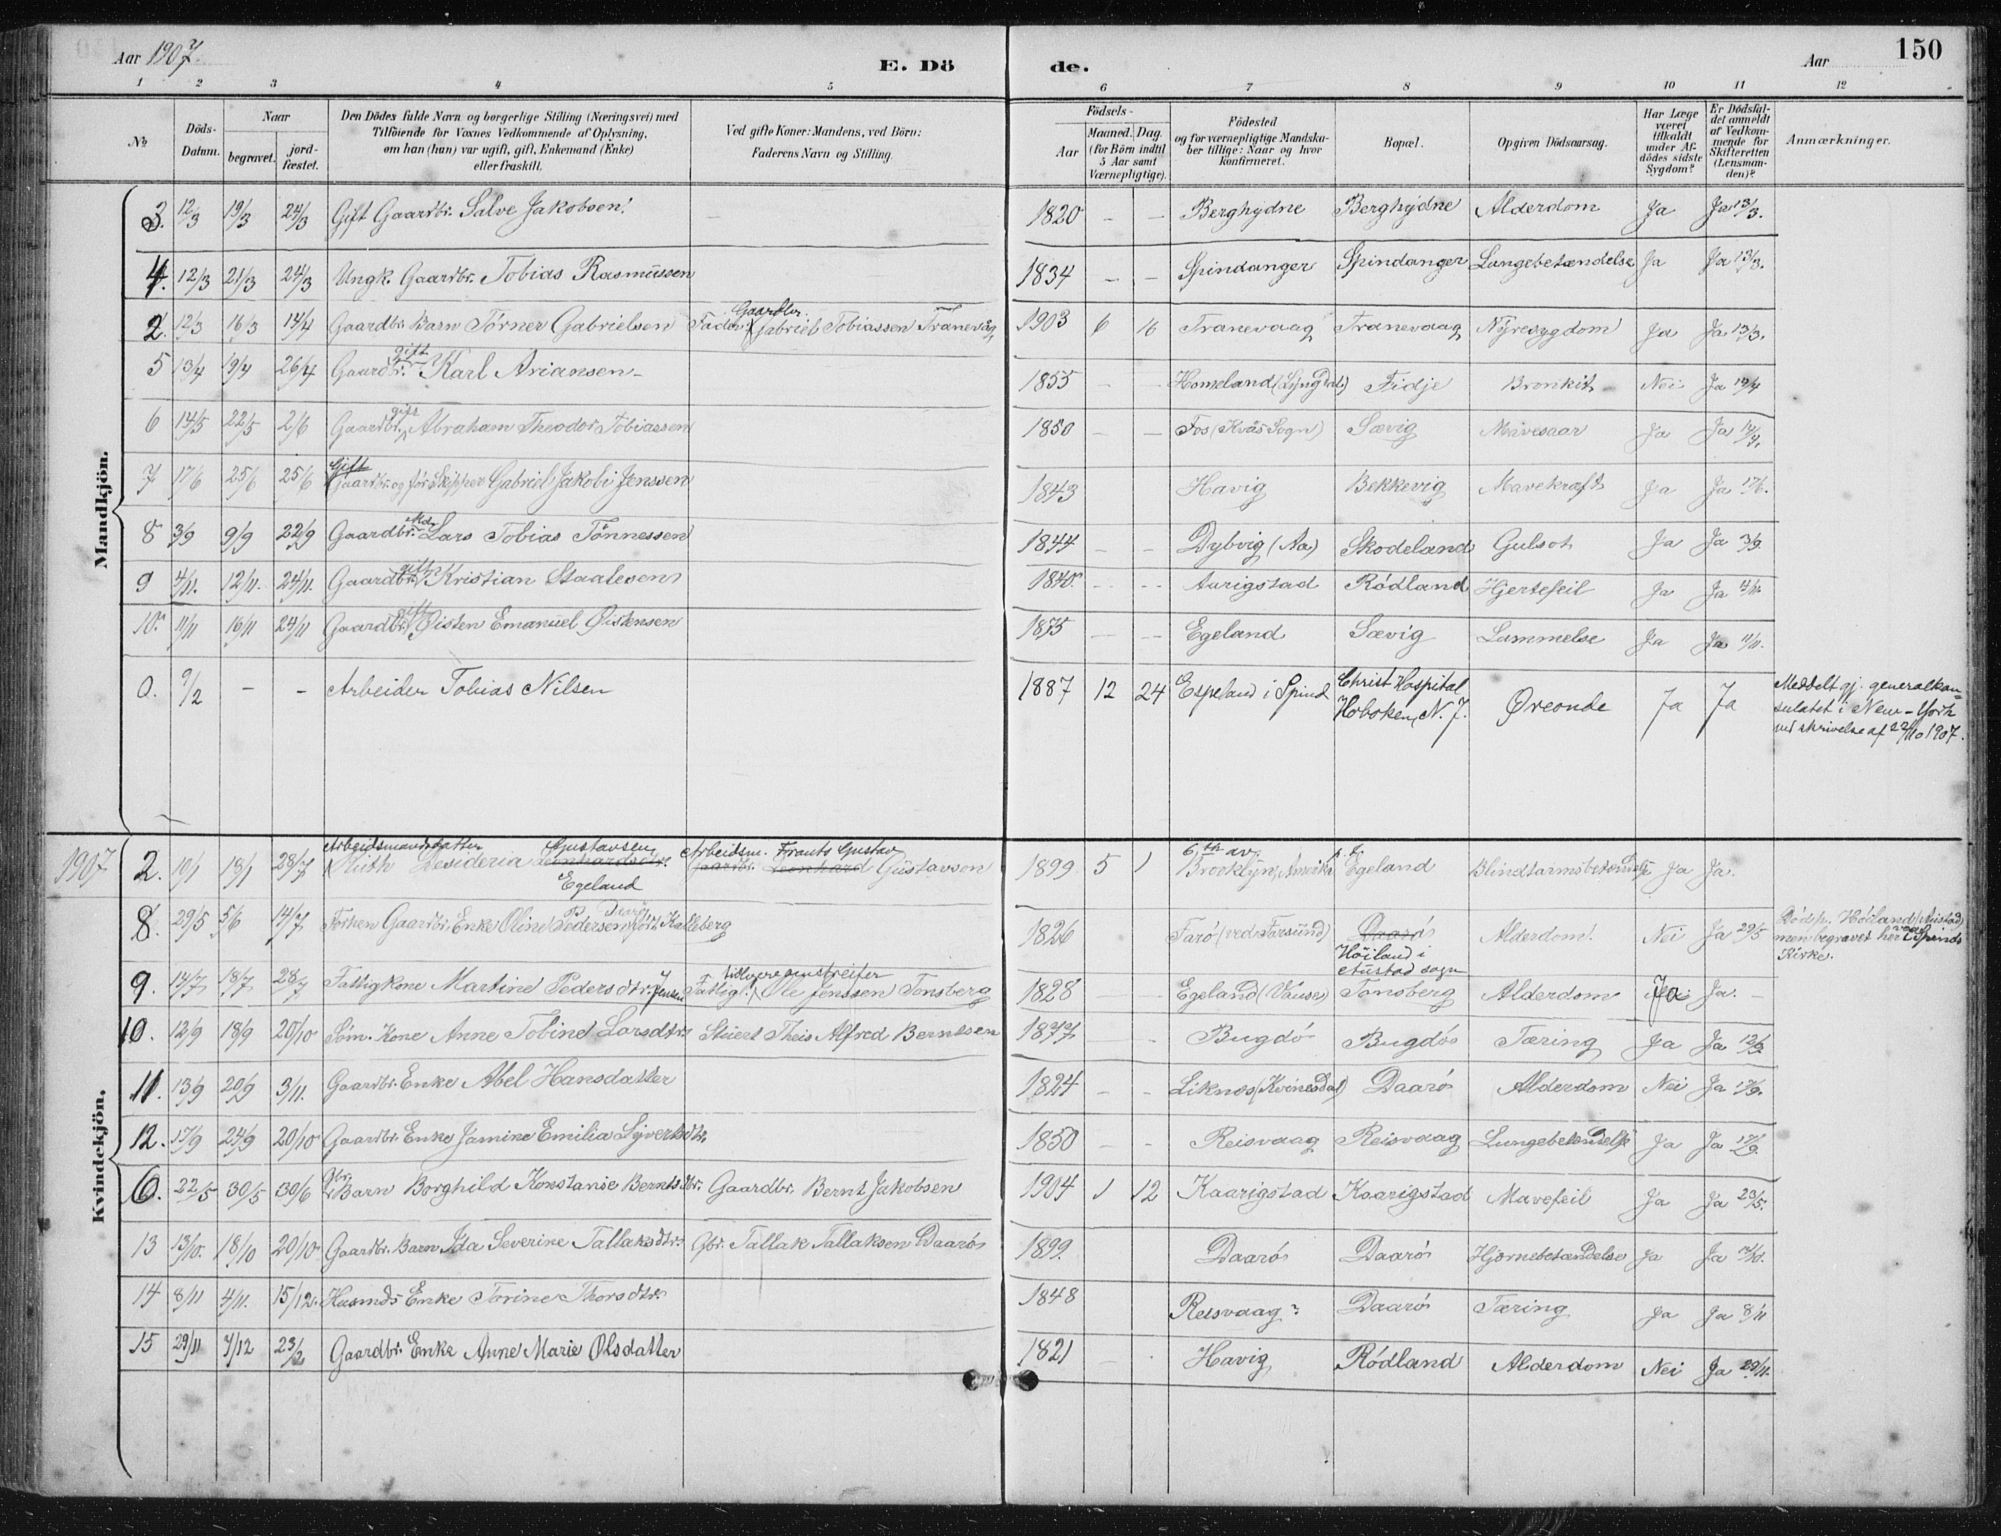 Aar 1907.
E. Dö
de.
Aar
150
1 2 3 4 5 6 7 8 9 10 11 12
No.
Döds-Datum.
Naar
begravet.
jord-fæstet.
Den Dödes fulde Navn og borgerlige Stilling (Næringsvei) med
Tilföiende for Voxnes Vedkommende af Oplysning,
om han (hun) var ugift, gift, Enkemand (Enke)
eller fraskilt.
Ved gifte Koner: Mandens, ved Börn:
Faderens Navn og Stilling.
Födsels-
Aar
Maaned. Dag.
(for Börn indtil
5 Aar samt
Værnepligtige).
Födested
og for værnepligtige Mandska-
ber tillige: Naar og hvor
konfirmeret.
Bopæl.
Opgiven Dödsaarsag.
Har Læge
været
tilkaldt
under Af-
dödes sidste
Sygdom?
Er Dödsfal-
det anmeldt
af Vedkom-
mende for
Skifteretten
(Lensman-
den)?
Anmærkninger.
Mandkjön.
3. 12/3 19/3 24/3 Gift Gaardbr. Salve Jakobsen. – 1820 – – Berghydne Berghydne Alderdom Ja Ja 13/3.
4. 12/3 21/3 24/3 Ungk. Gaardbr. Tobias Rasmussen 1834 – – Spindanger Spindanger Lungebetændelse Ja Ja 13/3.
2. 12/3 16/3 14/4 Gaardbr. Barn Törner Gabrielsen Fader: Gaardbr. Gabriel Tobiassen Tranevåg 1903 6 16 Tranevaag Tranevaag Nyresygdom Ja Ja 13/3.
5 13/4 19/4 26/4 Gaardbr. gift Karl Ariansen 1855 – – Homeland (Lyngdal) Fidje Bronkit Nei Ja 14/4
6 14/5 22/5 2/6 Gaardbr. gift Abraham Theodor Tobiassen 1850 – – Fos (Kvås Sogn) Sævig Mavesaar Ja Ja
7 17/6 25/6 25/6 Gift Gaardbr. og för. Skipper Gabriel Jakobi Jenssen 1843 Havig Bekkevig Mavekræft Ja Ja 17/6.
8 3/9 9/9 22/9 Gaardbr. Lars Tobias Tönnessen 1844 – – Dybvig (Aa) Skodeland Gulsot Ja Ja 3/9.
9 4/11. 12/11. 24/11. Gaardbr. gift Kristian Staalesen 1840. – – Aurigstad Rödland Hjertefeil Ja Ja 4/11.
10. 11/11 16/11 24/11 Gaardbr. gift Øisten Emanuel Øistensen 1875 – – Egeland Sævig Lammelse Ja Ja 11/11.
0. 9/2 – – Arbeider Tobias Nilsen 1887 12 24 Espeland i Spind Christ Hospital Hoboken, N. J. Øreonde Ja Ja Meddelt gj. generalkon-
sulatet i New-York
ved skrivelse af 22/10 1907.
Kvindekjön.
1907 2. 10/1 18/1 28/7 Arbeidsmandsdatter Ruth Desideria Leonhardsdtr. Gustavsen Egeland Arbeidsm. Frants Gustav Gaardbr. Leonhard Gustavson 1899 5 1 Brooklyn, Amerika Egeland Blindtarmsbetændelse Ja Ja.
8. 29/5 5/6 14/7 Gaardbr. Enke Oline Pedersen Kalleberg 1826 Farö (ved Farsund) Daarö Höiland i Austad sogn Alderdom. Nei Ja 29/5 Död p. Höiland (Austad)
men begravet her ved Spinds
Kirke.
9. 14/7 18/7 28/7 Fattigkone Martine Pedersdtr. Jensen Fattigl. tidligere Ole Jenssen Tonsberg 1828 – – Egeland (Vanse) Tonsberg Alderdom Ja Ja. –
10. 12/9 18/9 20/10 Söm. Kone Anne Tobine Larsdtr. Stuert Theis Alfred Berntsen 1877 – – Bugdö Bugdö Tæring Ja Ja 12/9.
11. 13/9 20/9 3/11. Gaardbr. Enke Abel Hansdatter 1824 – – Liknes (Kvinesdal) Daarö Alderdom Nei Ja
12. 17/9 24/9 20/10 Gaardbr. Enke Jamine Emilia Syvertsdtr. 1850 – – Reisvaag Reisvaag Lungebetændelse Ja Ja 17/9.
6. 22/5 30/5 30/6 Gbr. Barn Borghild Konstanse Berntsdtr. Gaardbr. Bernt Jakobsen 1904 1 12 Kaarigstad Kaarigstad Mavefeil Ja Ja 23/5.
13 13/10. 18/10 20/10 Gaardbr. Barn Ida Severine Tallaksdtr. Gbr. Tallak Tallaksen Daarö 1899. Daarö Daarö Hjernebetændelse Ja Ja
14 8/11 4/11. 15/12. Husmds Enke Torine Thorsdtr. 1848 Reisvaag? Daarö Tæring Ja Ja 8/11
15 29/11 7/12 Gaardbr. Enke Anne Marie Olsdatter 1821 – Havig Rödland Alderdom Nei Ja 29/11.